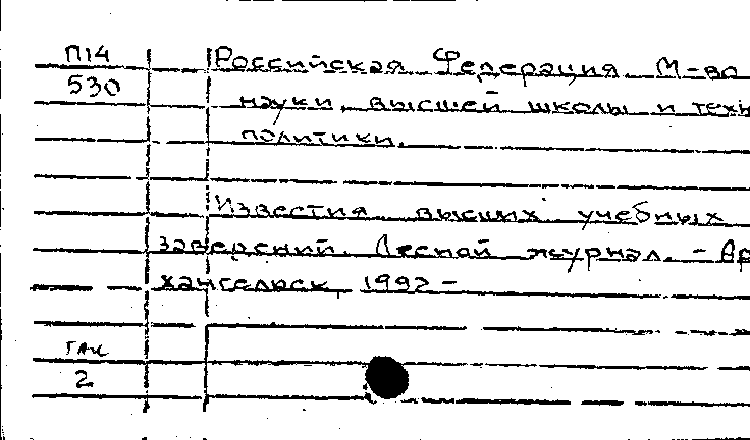 П14
530
Российская Федерация. М-во
науки, высшей школы и техн
политики.
Известия высших учебных
заведений. Лесной журнал. - Ар
хангельск, 1992 -
2